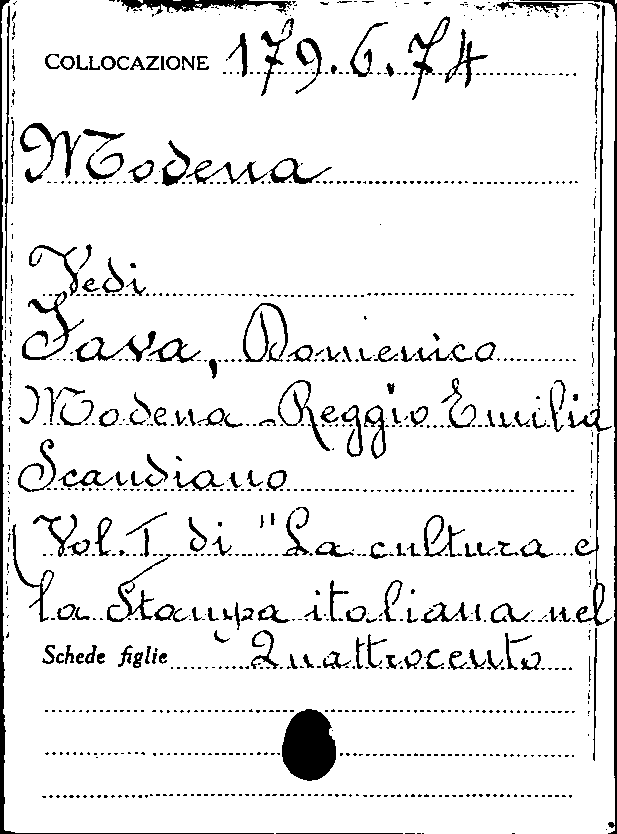 COLLOCAZIONE 179.6.74
Modena
Vedi
Fava, Domenico
Modena - Reggio Emilia
Scandiano
Vol. I di "La cultura e
la Stampa italiana nel
Schede figlie Quattrocento